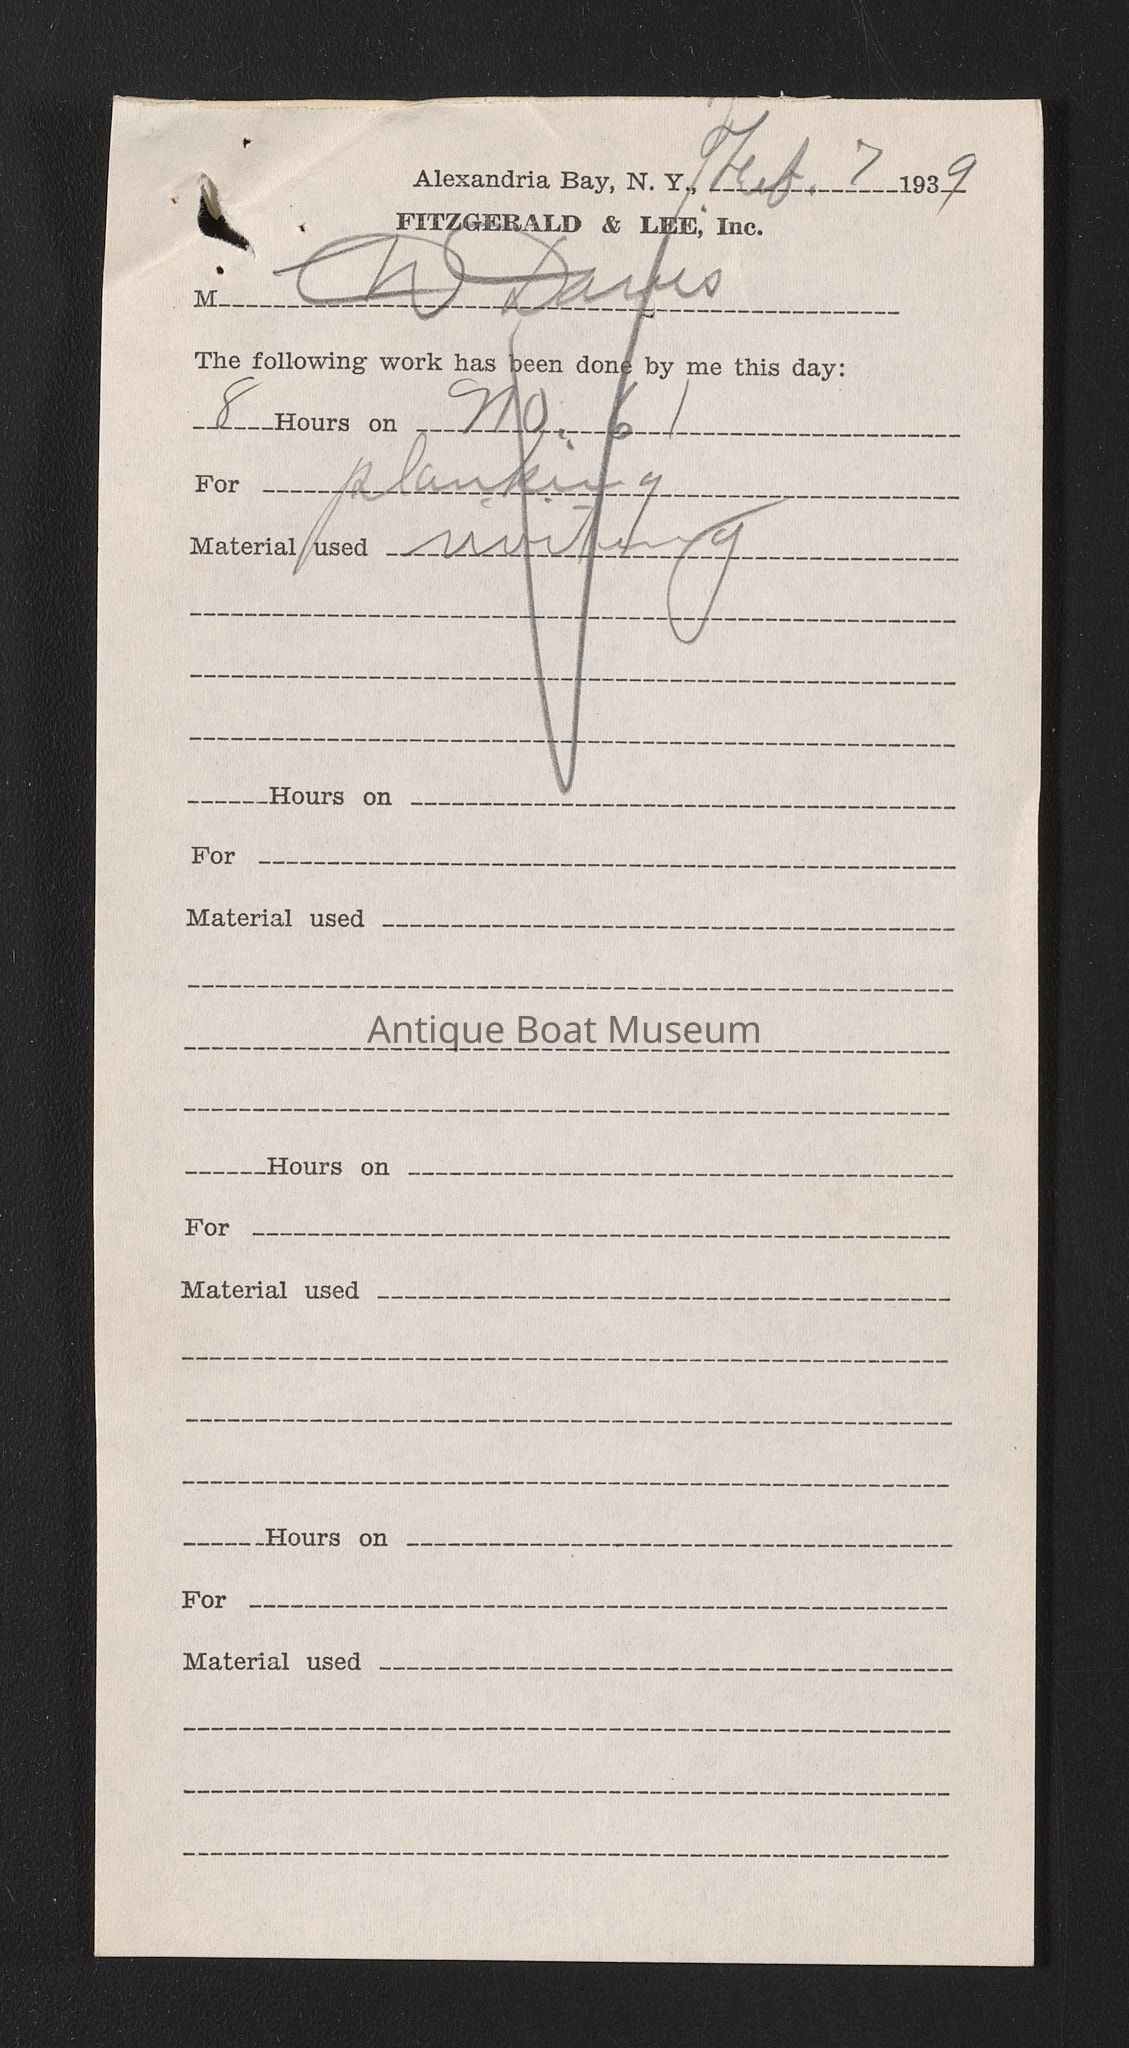 Alexandria Bay, N. Y., Feb. 7 1939
FITZGERALD & LEE, Inc.
M CW Davis
The following work has been done by me this day:
8 Hours on No. 61
For planking
Material used
Hours on
For
Material used
Antique Boat Museum
Hours on
For
Material used
Hours on
For
Material used